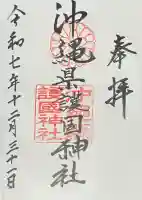 奉拝
沖縄県護国神社
令和七年十二月三十一日
護國神社